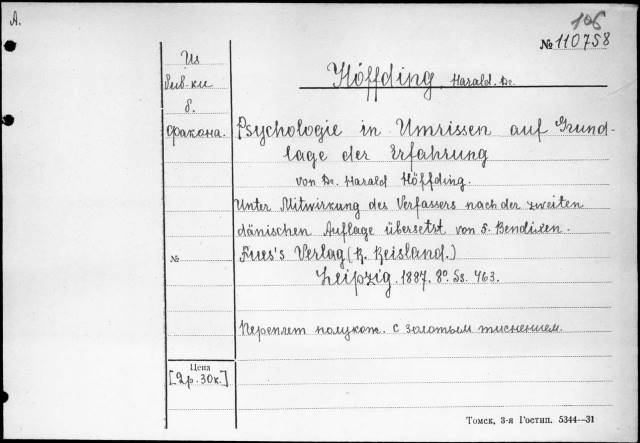 А.
106
№ 110758
Из
бив-ки
б.
Фракона.
Höffding, Harald. Dr.
Psychologie in Umrissen auf Grund-
lage der Erfahrung
von Dr. Harald Höffding.
Unter Mitwirkung des Verfassers nach der zweiten
dänischen Auflage übersetzt von F. Bendixen.
№
Fues's Verlag (R. Reisland.)
Leipzig. 1887. 8º. Ss. 463.
Переплет полукож. с золотым тиснением.
Цена
[2р. 30к.]
Томск, 3-я Гостип. 5344—31